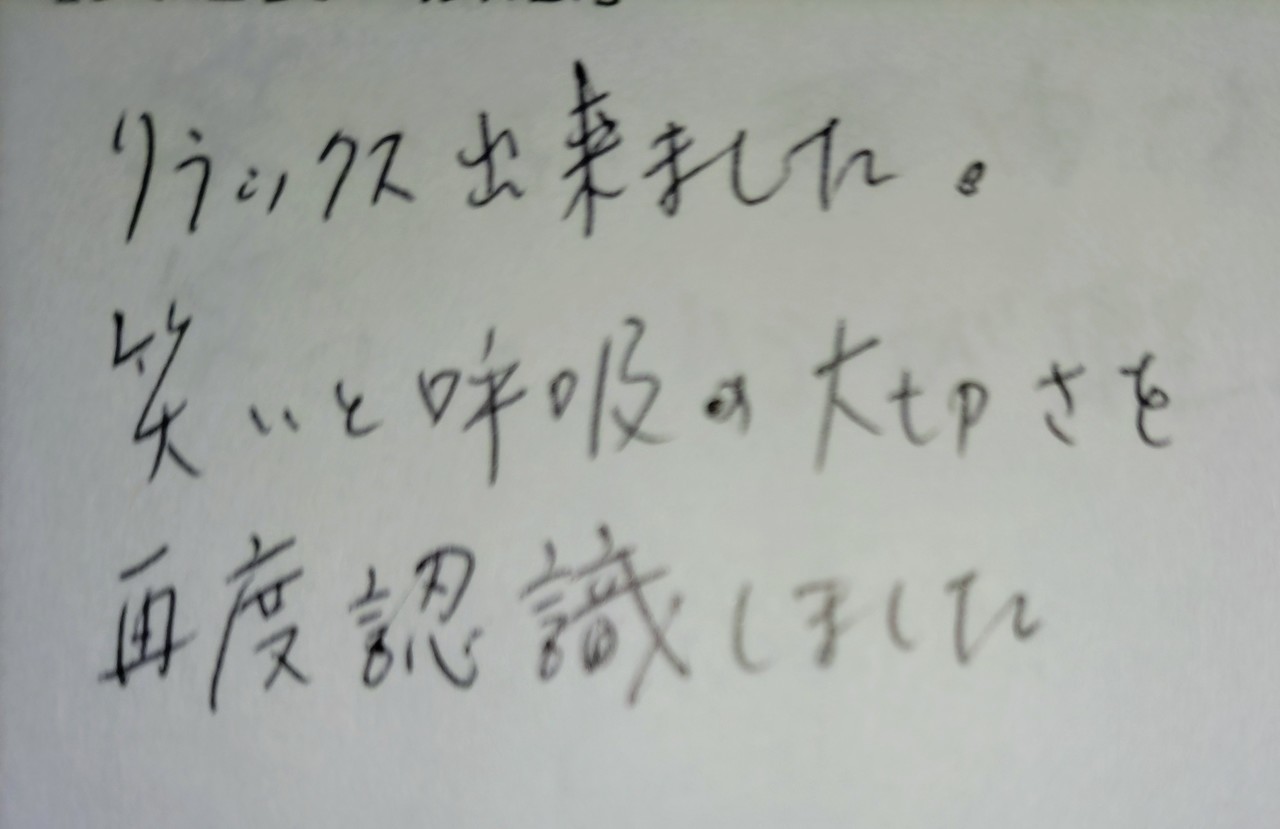 リラックス出来ました。
笑いと呼吸の大切さを
再度認識しました